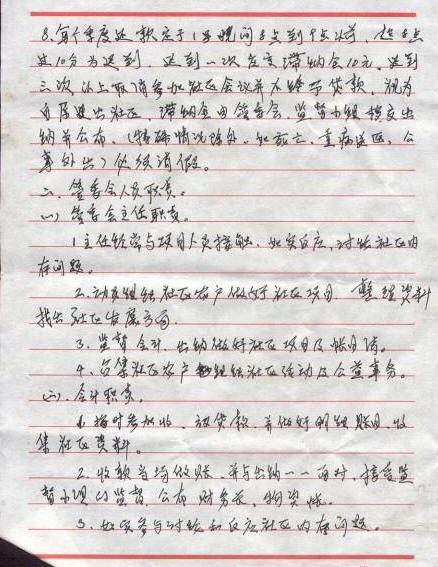 8.每个季度还款定于1号晚间8点到9点以前，超9点
过10分为迟到，迟到一次交滞纳金10元，迟到
三次以上取消参加社区会议并不给予贷款，视为
自愿退出社区，滞纳金由管委会、监督小组移交出
纳并公布。（特殊情况除外，如死亡、重病送医、公
事外出）必须请假。
二、管委会人员职责。
(一)管委会主任职责。
1.主任经常与项目人员接触，如实反应，讨论社区内
存问题。
2.动员组织社区农户做好社区项目，整理资料
找出社区发展方向。
3.监督会计、出纳做好社区项目及帐目清。
4.召集社区农户组织社区活动及公益事务。
(二)会计职责。
1.按时参加收、放贷款，并做好明细账目，收
集社区资料。
2.收款当场做账，并与出纳一一面对，接受监
督小组的监督，公布财务表，物资帐。
3.如实参与讨论和反应社区内存问题。